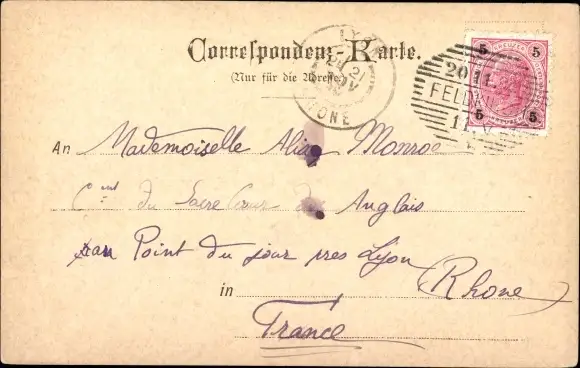 Correspondenz-Karte.
(Nur für die Adresse.)
LYON
RHONE
21
5 KREUZER 5
5 5
20 11.
FELDK
11.V
An Mademoiselle Monroe
Cent du Sacré Coeur Anglais
au Point du jour pres Lyon
(Rhone)
in France